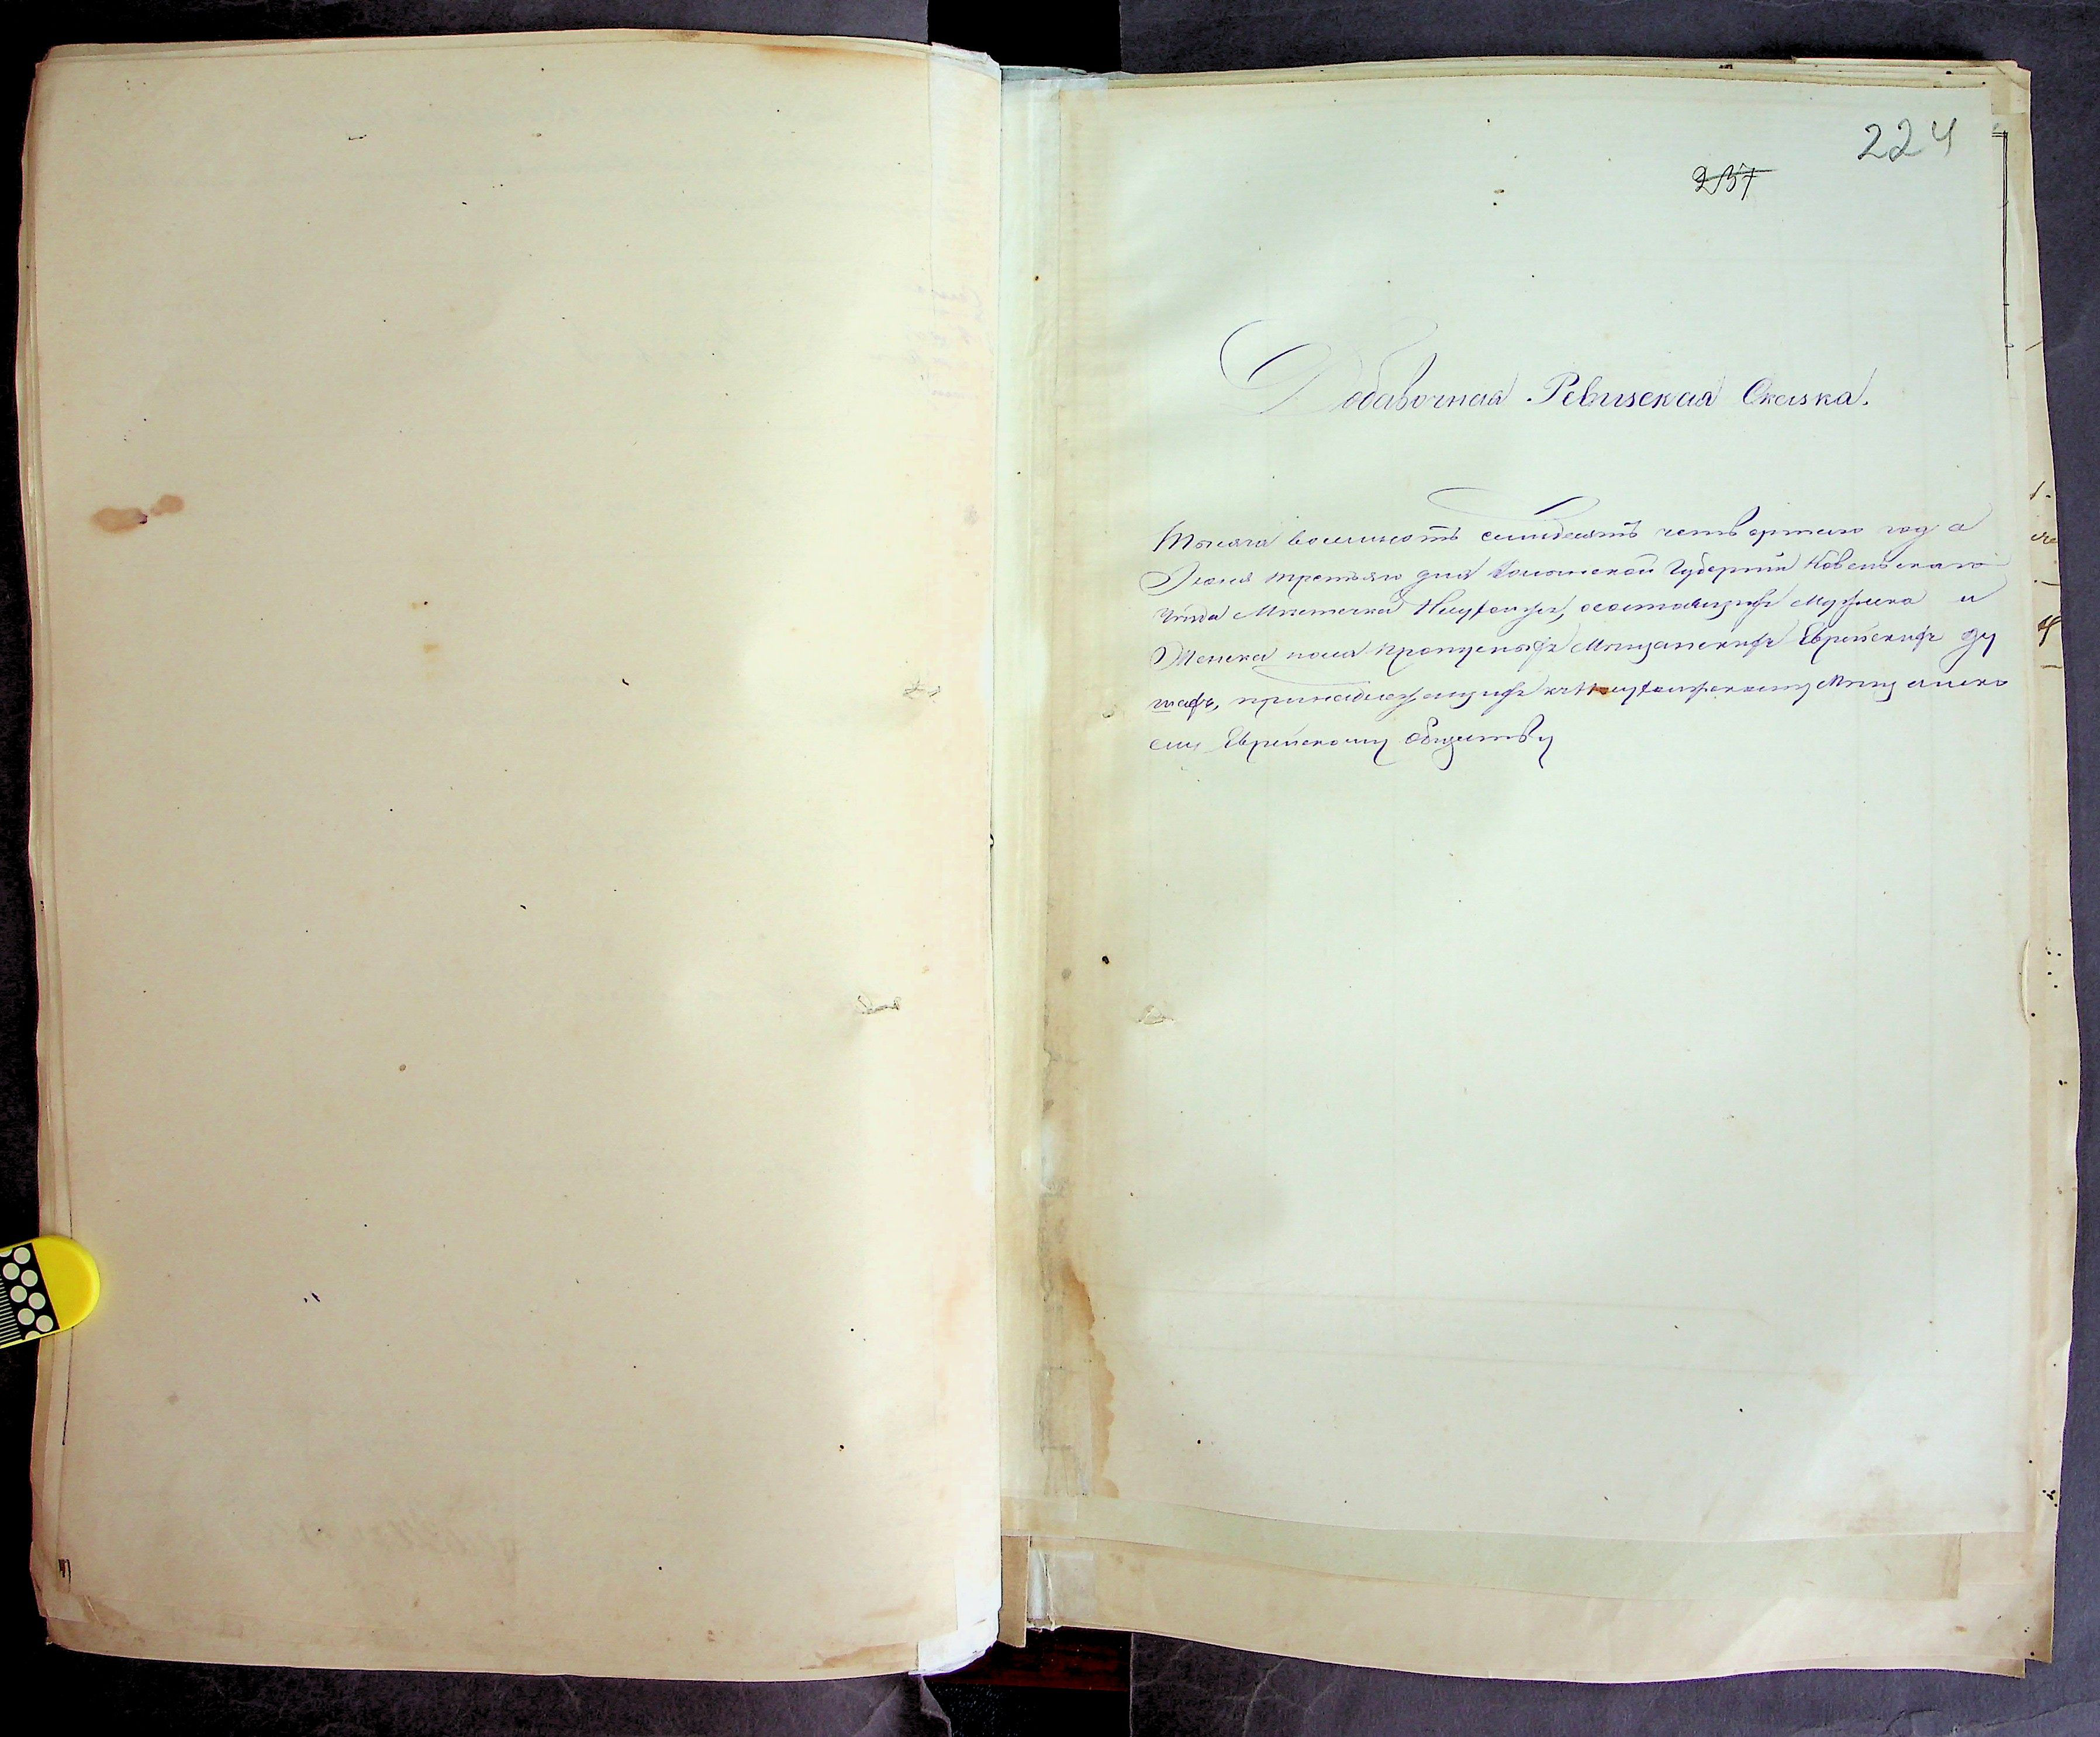 224
237
Добавочная Ревизская Сказка.
Тысяча восемьсотъ семидесятъ четвертаго года
Июня третьяго дня Волынской Губерніи Ковельскаго
Уѣзда Мѣстечка, о состоящихъ Мужеска и
Женска пола пропущеныхъ Мѣщанскихъ Еврейскихъ ду
шахъ, принадлежащихъ къ Мѣщанско
му Еврейскому Обществу